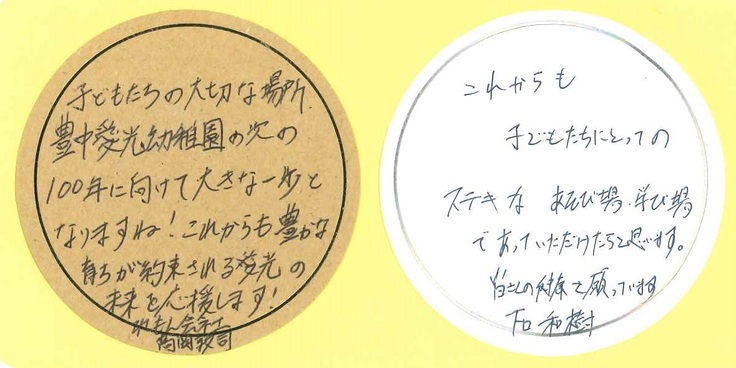 子どもたちの大切な場所、
豊中愛光幼稚園の次の
100年に向けて大きな一歩と
なりますね！これからも豊かな
育ちが約束される愛光の
未来を応援します！
これからも
子どもたちにとっての
ステキな あそび場、学び場
であっていただけたらと思います。
を願っています
和樹